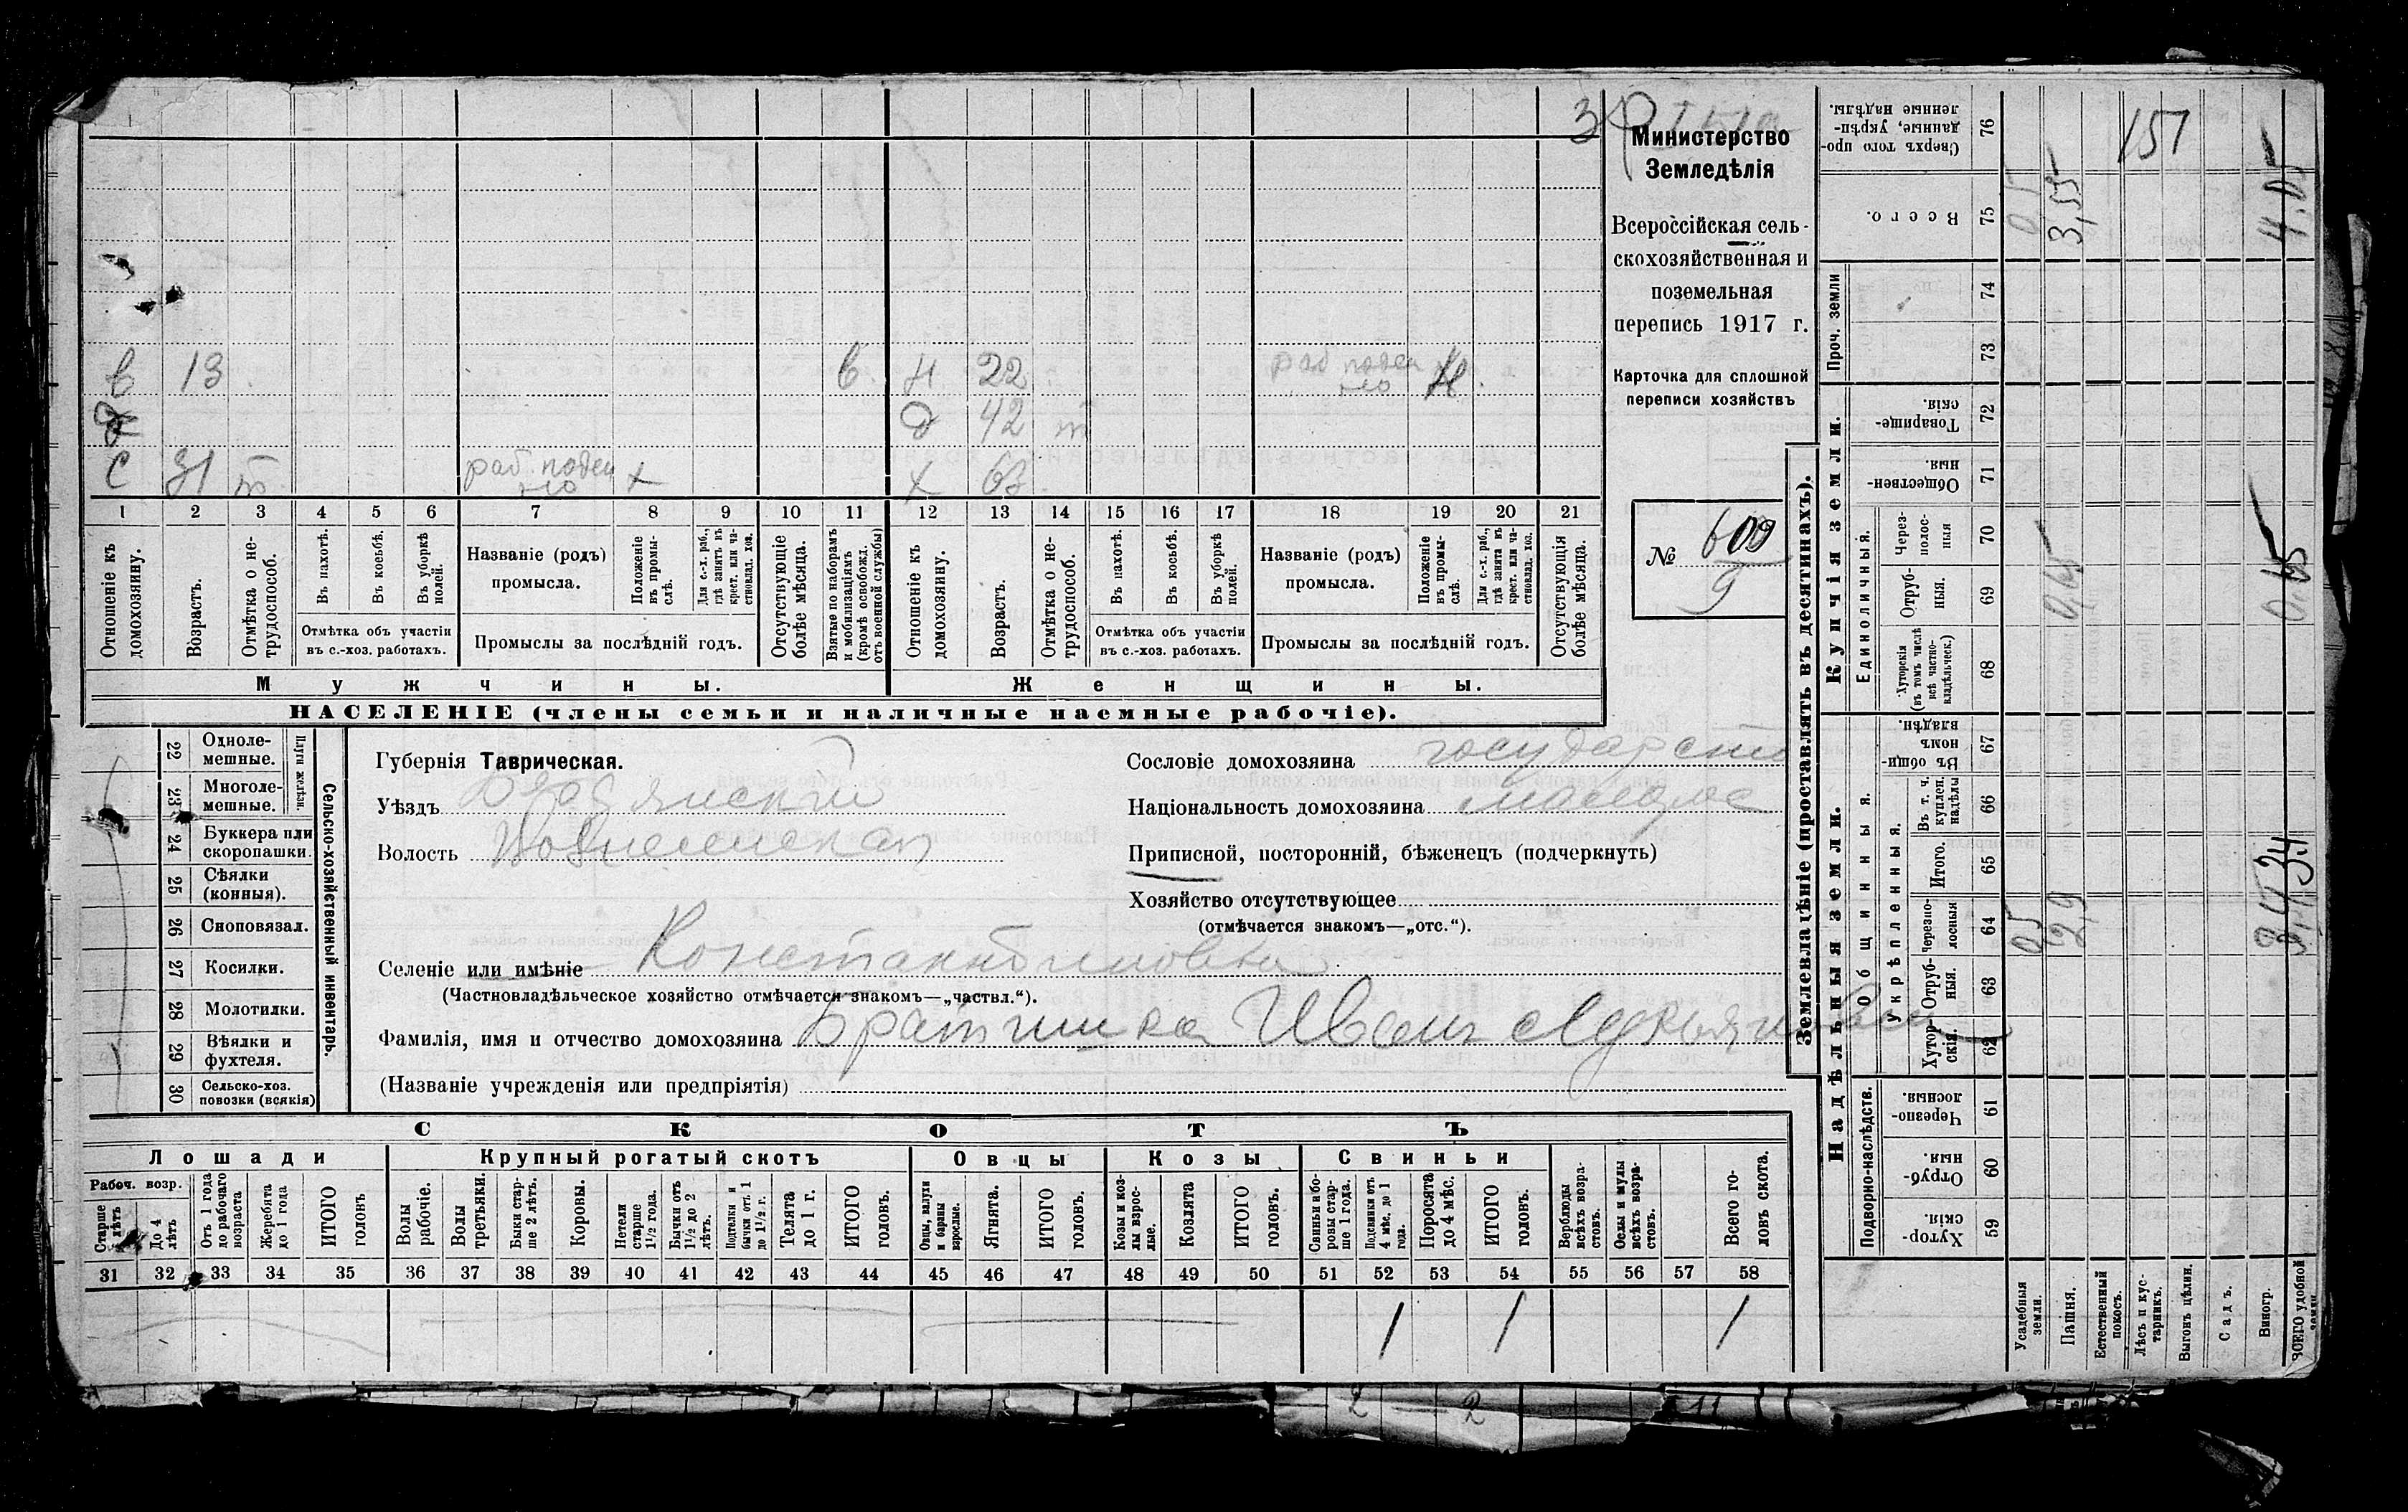 151
Министерство
Земледѣлія
Всероссійская сель-
скохозяйственная и
поземельная
перепись 1917 г.
Карточка для сплошной
переписи хозяйствъ
№ 609
9
в 13 в. н 22 раб поден но Н.
д 42 т
с 31 т раб. поден но х х 63
1 2 3 4 5 6 7 8 9 10 11 12 13 14 15 16 17 18 19 20 21
Отношеніе къ домохозяину.
Возрастъ.
Отмѣтка о не-трудоспособ.
Въ пахотѣ.
Въ косьбѣ.
Въ уборкѣ полей.
Отмѣтка объ участіи
въ с.-хоз. работахъ.
Названіе (родъ)
промысла.
Положеніе въ промы-слѣ.
Для с.-х. раб., гдѣ занятъ въ крест. или ча-стновлад. хоз.
Промыслы за послѣдній годъ.
Отсутствующіе болѣе мѣсяца.
Взятые по наборамъ и мобилизаціямъ (кромѣ освобожд. отъ военной службы)
Отношеніе къ домохозяину.
Возрастъ.
Отмѣтка о не-трудоспособ.
Въ пахотѣ.
Въ косьбѣ.
Въ уборкѣ полей.
Отмѣтка объ участіи
въ с.-хоз. работахъ.
Названіе (родъ)
промысла.
Положеніе въ промы-слѣ.
Для с.-х. раб., гдѣ занята въ крест. или ча-стновлад. хоз.
Промыслы за послѣдній годъ.
Отсутствующія болѣе мѣсяца.
Мужчины. Женщины.
НАСЕЛЕНІЕ (члены семьи и наличные наемные рабочіе).
Сельско-хозяйственный инвентарь.
Плуги желѣзн.
22 Одноле-мешные.
23 Многоле-мешные.
24 Буккера или скоропашки.
25 Сѣялки (конныя).
26 Сноповязал.
27 Косилки.
28 Молотилки.
29 Вѣялки и фухтеля.
30 Сельско-хоз. повозки (всякія)
Губернія Таврическая.
Уѣздъ Бердянскій
Волость Вознесенская
Сословіе домохозяина государств
Національность домохозяина малорос
Приписной, посторонній, бѣженецъ (подчеркнуть)
Хозяйство отсутствующее
(отмѣчается знакомъ—„отс.“).
Селеніе или имѣніе Константиновка
(Частновладѣльческое хозяйство отмѣчается знакомъ—„частвл.“).
Фамилія, имя и отчество домохозяина Братишка Иванъ Лукьяновъ
(Названіе учрежденія или предпріятія)
СКОТЪ
Лошади Крупный рогатый скотъ Овцы Козы Свиньи
Рабоч. возр.
Старше 4 лѣтъ
До 4 лѣтъ
Отъ 1 года до рабочаго возраста
Жеребята до 1 года
ИТОГО головъ
Волы рабочіе.
Волы третьяки.
Быки стар-ше 2 лѣтъ.
Коровы.
Нетели старше 1½ года.
Бычки отъ 1½ до 2 лѣтъ.
Подтелки и бычки отъ 1 до 1½ г.
Телята до 1 г.
ИТОГО головъ.
Овцы, валухи и бараны взрослые.
Ягнята.
ИТОГО головъ.
Козы и коз-лы взрос-лые.
Козлята
ИТОГО головъ.
Свиньи и бо-ровы стар-ше 1 года.
Подсвинки отъ 4 мѣс. до 1 года.
Поросята до 4 мѣс.
ИТОГО головъ.
Верблюды всѣхъ возра-стовъ.
Ослы и мулы всѣхъ возра-стовъ.
Всего го-ловъ скота.
31 32 33 34 35 36 37 38 39 40 41 42 43 44 45 46 47 48 49 50 51 52 53 54 55 56 57 58
1 1 1
2 2 11
Землевладѣніе (проставлять въ десятинахъ).
Надѣльныя земли.
Купчія земли.
Проч. земли
Подворно-наслѣдств.
Общинныя.
Укрѣпленныя.
Единоличный.
76 Сверхъ того про-данные, укрѣп-ленные надѣлы.
75 Всего.
74
73
72 Товарище-скія.
71 Обществен-ныя.
70 Через-полос-ныя
69 Отруб-ныя.
68 Хуторскія (въ томъ числѣ всѣ частно-владѣльческ.)
67 Въ общи-номъ владѣн.
66 Въ т. ч. куплен. надѣлы
65 Итого.
64 Черезпо-лосныя
63 Отруб-ныя.
62 Хутор-скія.
61 Черезпо-лосныя.
60 Отруб-ныя.
59 Хутор-скія.
Усадебныя земли.
Пашня.
Естественный покосъ.
Лѣсъ и кус-тарникъ.
Выгонъ цѣлин.
Садъ.
Виногр.
ВСЕГО удобной земли
3,55
4.05
0,65
0.65
2,9
3.4